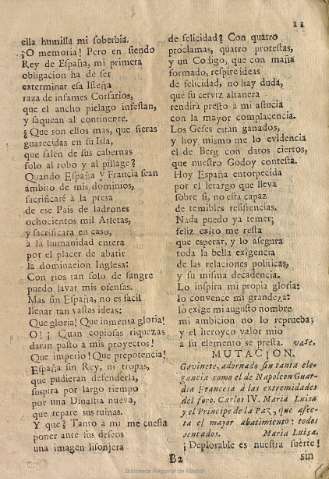 11
ella humilla mi soberbia.
¡O memoria! Pero en siendo
Rey de España, mi primera
obligacion ha de ser
exterminar esa Isleña
raza de infames Corsarios,
que el ancho pielago infestan,
y saquean al continente.
¿Que son ellos mas, que fieras
guarecidas en su Isla,
que salen de sus cabernas
solo al robo y al pillage?
Quando España y Francia sean
ambito de mis dominios,
sacrificaré à la presa
de ese Pais de ladrones
ochocientos mil Atletas,
y sacrificára en caso,
à la humanidad entera
por el placer de abatir
la dominacion Inglesa:
Con rios tan solo de sangre
puedo lavar mis ofensas.
Mas sin España, no es facil
llenar tan vastas ideas:
Que gloria! Que inmensa gloria!
O! ¡ Quan copiosas riquezas
daran pasto à mis proyectos!
Que imperio! Que prepotencia!
España sin Rey, ni tropas,
que pudieran defenderla,
suspira por largo tiempo
por una Dinastia nueva,
que repare sus ruinas.
Y que? Tanto a mi me cuesta
poner ante sus deseos
una imagen lisonjera
de felicidad? Con quatro
proclamas, quatro protestas,
y un Codigo, que con maña
formado, respire ideas
de felicidad, no hay duda,
que su cerviz altanera
rendirá presto à mi astucia
con la mayor complacencia.
Los Gefes estan ganados,
y hoy mismo me lo evidencia
el de Berg con datos ciertos,
que nuestro Godoy contesta.
Hoy España entorpecida
por el letargo que lleva
sobre si, no está capaz
de temibles resistencias.
Nada puedo ya temer;
feliz exito me resta
que esperar, y lo asegura
toda la bella exigencia
de las relaciones politicas,
y su misma decadencia.
Lo inspira mi propia gloria:
lo convence mi grandeza:
lo exige mi augusto nombre
mi ambicion no lo reprueba;
y el heroyco valor mio
a su elemento se presta. vase.
MUTACION.
Gavinete, adornado sin tanta ele-
gancia como el de Napoleon Guar-
dia Francesa à las extremidades
del foro. Carlos IV. Maria Luisa
y el Principe de la Paz, que afec-
ta el mayor abatimiento: todos
sentados. Maria Luisa.
¡Deplorable es nuestra suerte!
B2 sin
Biblioteca Regional de Madrid